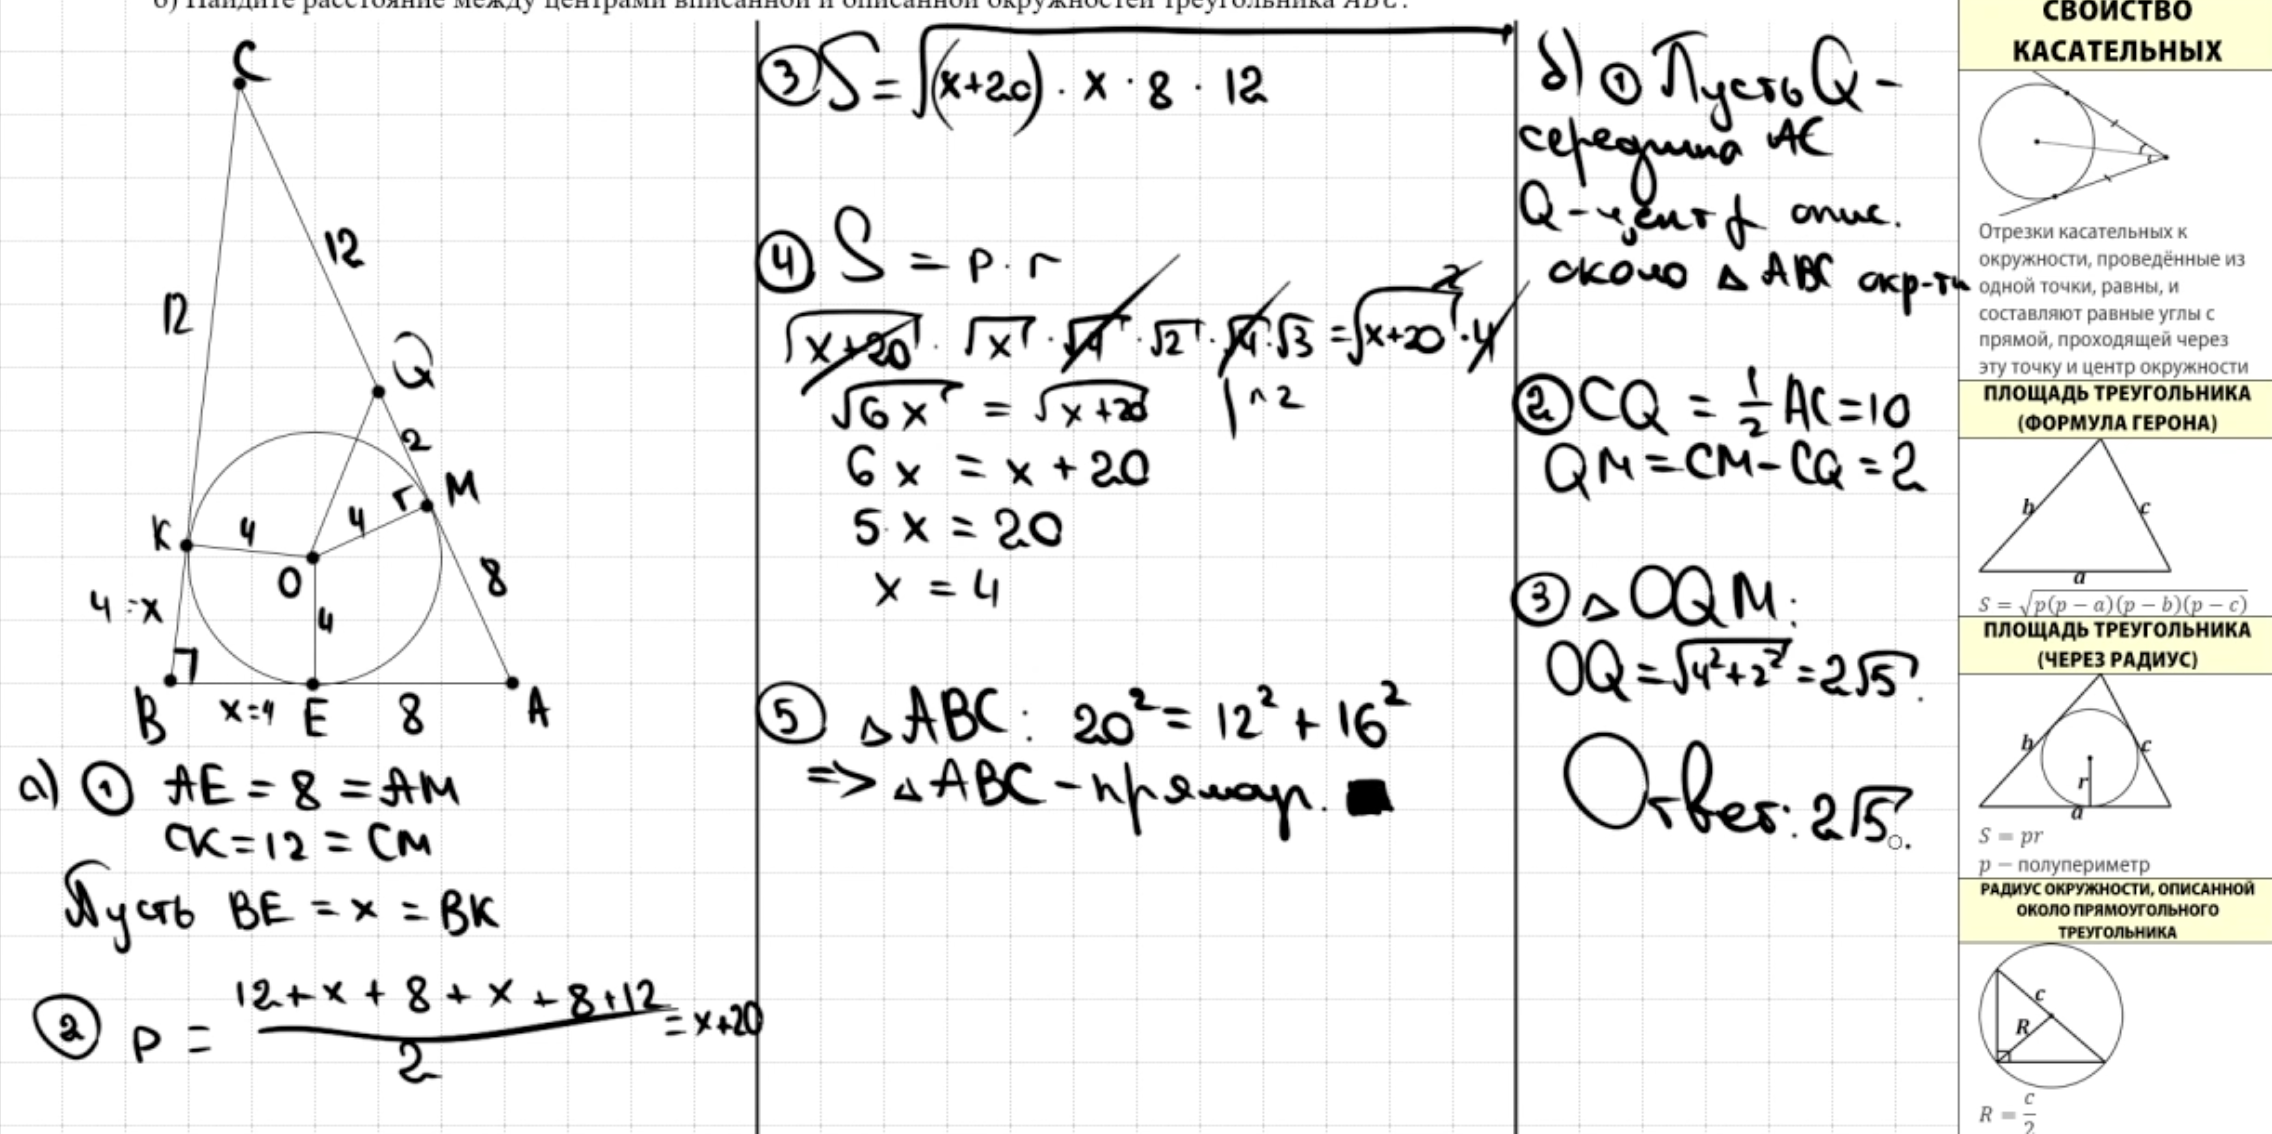 б) Найдите расстояние между центрами вписанной и описанной окружностей треугольника ABC.
C
12
12
Q
2
M
r
K
4
4
O
4
8
4=x
B
x=4
E
8
A
а) ① AE = 8 = AM
CK = 12 = CM
Пусть BE = x = BK
② p = (12 + x + 8 + x + 8 + 12)/2 = x+20
③ S = √((x+20) · x · 8 · 12)
④ S = p · r
√(x+20) · √x · √4 · √2 · √4 · √3 = √(x+20)² · 4
√(6x) = √(x+20) |^2
6x = x + 20
5x = 20
x = 4
⑤ △ABC: 20² = 12² + 16²
=> △ABC - прямоуг. ■
б) ① Пусть Q -
середина AC
Q - центр опис.
около △ABC окр-ти
② CQ = 1/2 AC = 10
QM = CM - CQ = 2
③ △OQM:
OQ = √(4²+2²) = 2√5.
Ответ: 2√5.
СВОЙСТВО
КАСАТЕЛЬНЫХ
Отрезки касательных к
окружности, проведённые из
одной точки, равны, и
составляют равные углы с
прямой, проходящей через
эту точку и центр окружности
ПЛОЩАДЬ ТРЕУГОЛЬНИКА
(ФОРМУЛА ГЕРОНА)
b
c
a
S = √(p(p − a)(p − b)(p − c))
ПЛОЩАДЬ ТРЕУГОЛЬНИКА
(ЧЕРЕЗ РАДИУС)
b
c
r
a
S = pr
p — полупериметр
РАДИУС ОКРУЖНОСТИ, ОПИСАННОЙ
ОКОЛО ПРЯМОУГОЛЬНОГО
ТРЕУГОЛЬНИКА
c
R
R = c/2